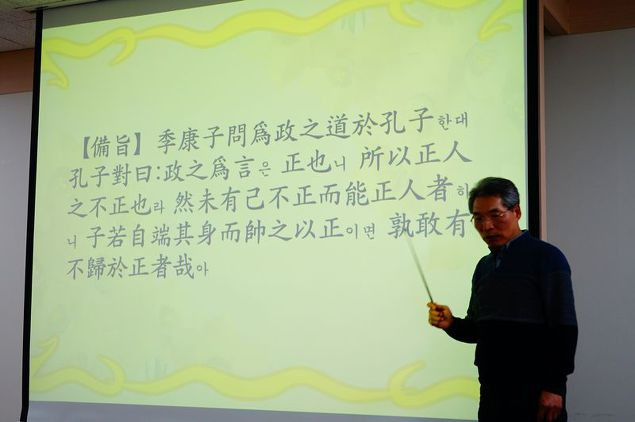 【備旨】 季康子問爲政之道於孔子한대
孔子對曰:政之爲言은 正也니 所以正人
之不正也라 然未有己不正而能正人者하
니 子若自端其身而帥之以正이면 孰敢有
不歸於正者哉아